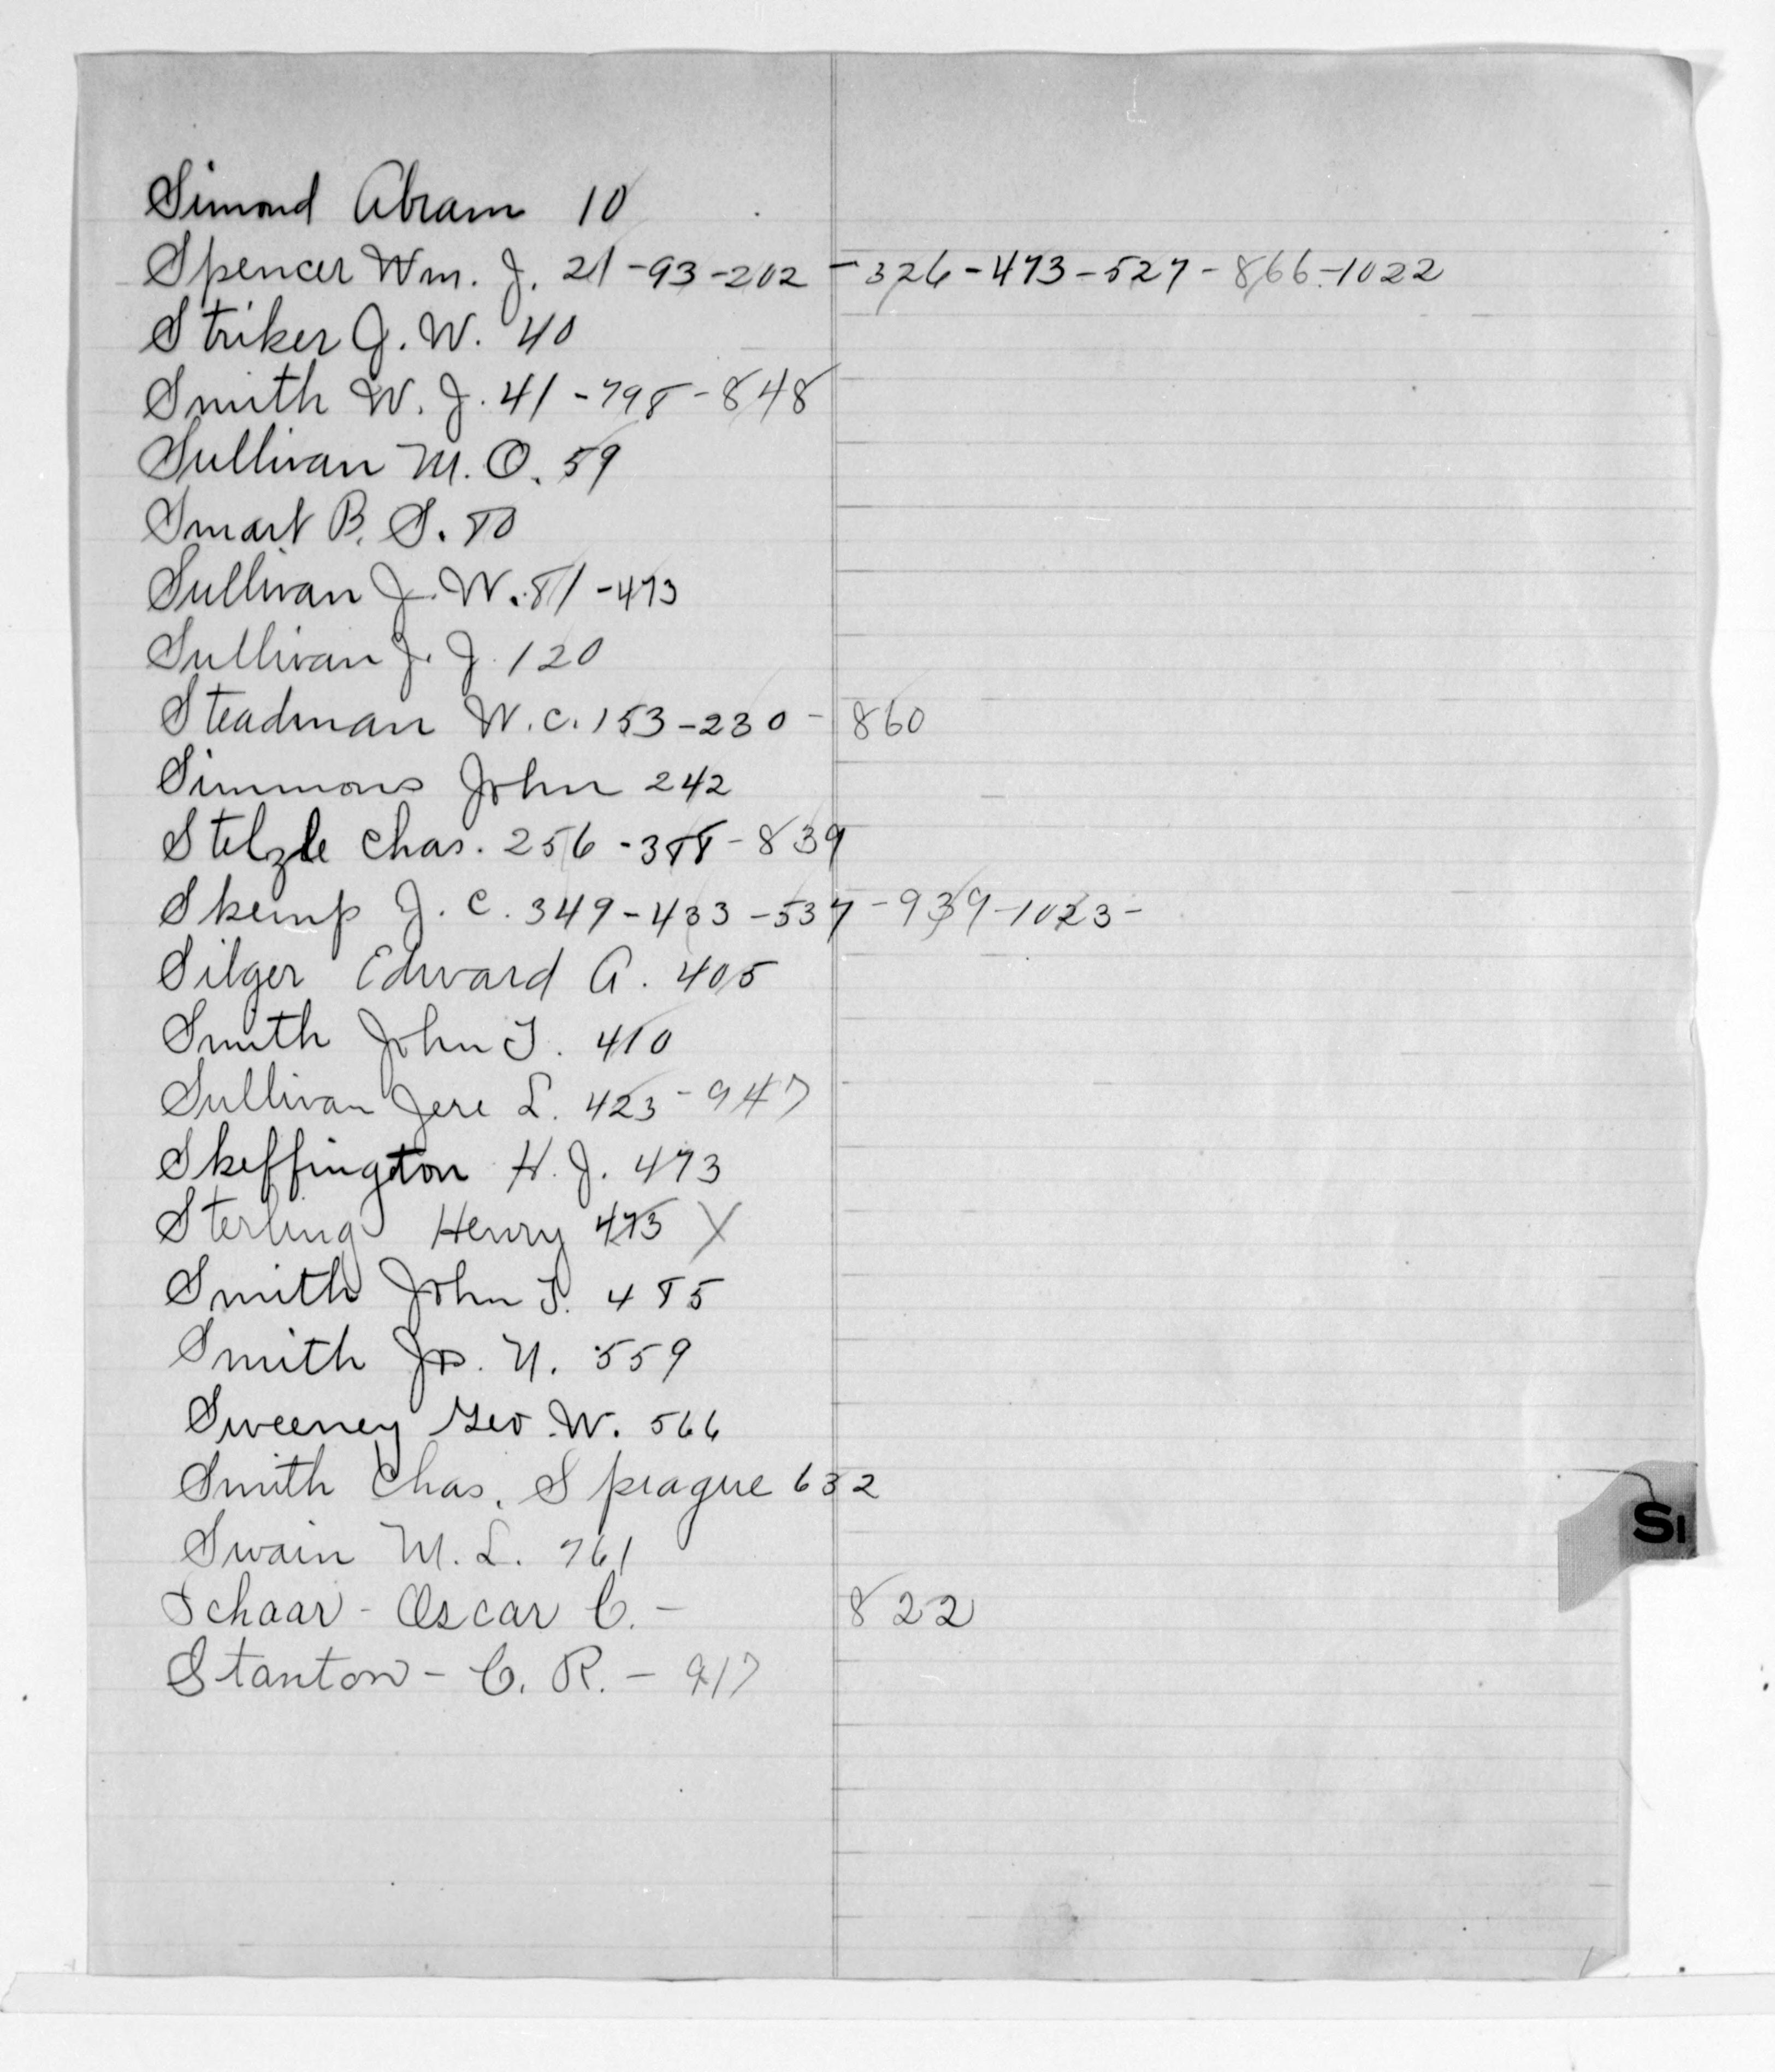 Simond Abram 10
Spencer Wm. J. 21-93-202-326-473-527-866-1022
Striker J. W. 40
Smith W. J. 41-798-848
Sullivan M. O. 59
Smart B. S. 80
Sullivan J. W. 81-473
Sullivan J. J. 120
Steadman W. C. 153-230-860
Simmons John 242
Stelzle Chas. 256-388-839
Skemp J. C. 349-433-537-939-1023-
Silger Edward A. 405
Smith John T. 410
Sullivan Jere L. 423-947
Skeffington H. J. 473
Sterling Henry 473 X
Smith John T. 485
Smith Jos. N. 559
Sweeney Geo. W. 566
Smith Chas. Sprague 632
Swain M. L. 761
Schaar - Oscar C. - 822
Stanton - C. R. - 917
Si